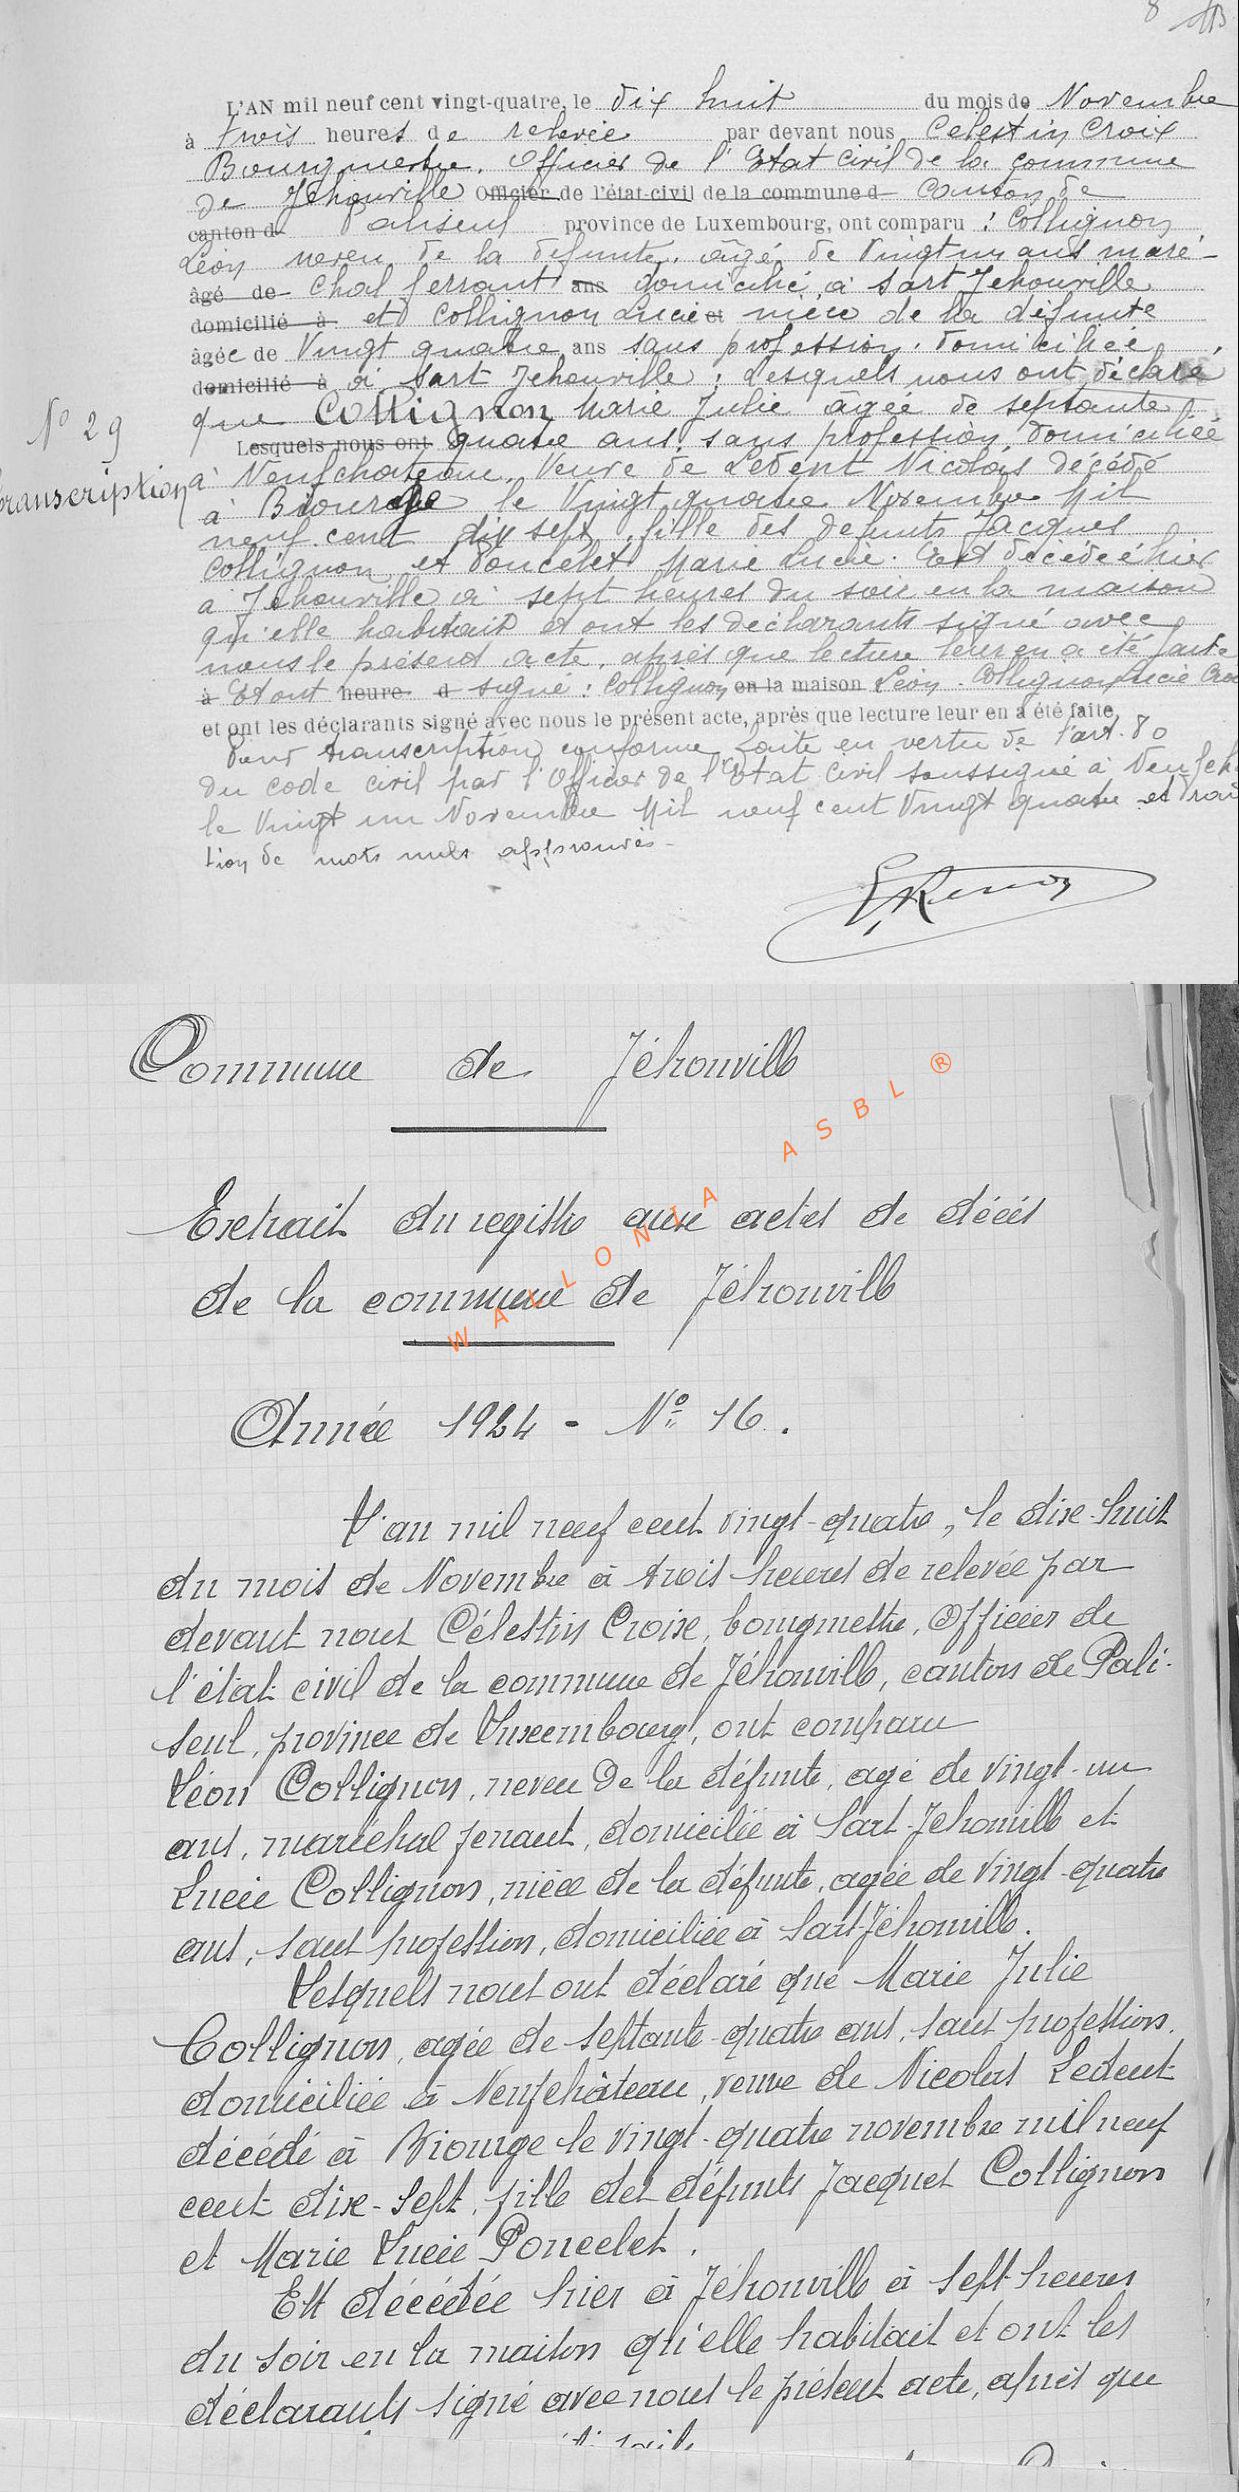 8
L'AN mil neuf cent vingt-quatre, le dix huit du mois de Novembre
à trois heures de relevée par devant nous Célestin Croix
Bourgmestre, Officier de l'Etat Civil de la commune
de Jehonville Officier de l'état-civil de la commune d canton de
canton d Paliseul province de Luxembourg, ont comparu : Collignon
Léon neveu de la défunte, âgé de Vingt un ans maré-
âgé de chal ferrant ans domicilié à Sart Jehonville
domicilié à et Collignon Lucie et nièce de la défunte
âgée de Vingt quatre ans sans profession, domiciliée
domicilié à à Sart Jehonville, Lesquels nous ont déclaré
que Collignon Marie Julie âgée de septante
Lesquels nous ont quatre ans, sans profession, domiciliée
N° 29
Transcription
à Neufchateau, Veuve de Ledent Nicolas décédé
à Biourge le Vingt quatre Novembre Mil
neuf cent dix sept, fille des défunts Jacques
Collignon et Poncelet Marie Lucie. Est décédée hier
à Jehonville à sept heures du soir en la maison
qu'elle habitait et ont les déclarants signé avec
nous le présent acte, après que lecture leur en a été faite
à Et ont heure d signé : Collignon en la maison Léon - Collignon Lucie
et ont les déclarants signé avec nous le présent acte, après que lecture leur en a été faite.
Pour transcription conforme faite en vertu de l'art. 80
du code civil par l'Officier de l'Etat Civil soussigné à
le Vingt un Novembre Mil neuf cent Vingt quatre et
tion de mots nuls approuvés -
Commune de Jéhonville
Extrait du registre aux actes de décès
de la commune de Jéhonville
WALLONIA ASBL ®
Année 1924 - N° 16.
L'an mil neuf cent vingt-quatre, le dix-huit
du mois de Novembre à trois heures de relevée par
devant nous Célestin Croix, bourgmestre, Officier de
l'état civil de la commune de Jéhonville, canton de Pali-
seul, province de Luxembourg, ont comparu
Léon Collignon, neveu de la défunte, agé de vingt-un
ans, maréchal ferrant, domicilié à Sart-Jehonville et
Lucie Collignon, nièce de la défunte, agée de vingt-quatre
ans, sans profession, domiciliée à Sart-Jéhonville.
Lesquels nous ont déclaré que Marie Julie
Collignon, agée de septante-quatre ans, sans profession,
domiciliée à Neufchâteau, veuve de Nicolas Ledent
décédé à Biourge le vingt-quatre novembre mil neuf
cent dix-sept, fille des défunts Jacques Collignon
et Marie Lucie Poncelet.
Est décédée hier à Jéhonville à sept heures
du soir en la maison qu'elle habitait et ont les
déclarants signé avec nous le présent acte, après que